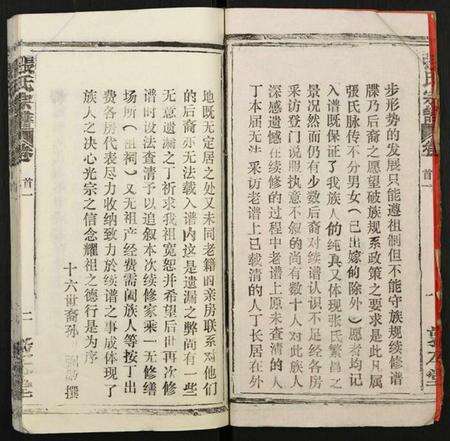 步形势的发展只能遵祖制但不能守族规续修谱
牒乃后裔之愿望破族规系政策之要求是此凡属
张氏脉传不分男女(已出嫁的除外)愿者均记
入谱既保证了我族人的纯真又体现张氏繁昌之
景况然而仍有少数后裔对续谱认识不足经各房
采访登门说服执意不叙的尚有数十人对此族人
深感遗憾在续修的过程中老谱上原未查清的人
丁本届无法采访老谱上已载清的人丁长居在外
張氏宗譜
卷
首
一
地既无定居之处又未同老籍的亲房联系对他们
的后裔亦无法载入谱内这是遗漏之弊尚有一些
无意遗漏之丁祈求我祖宽恕并希望后世再次修
谱时设法查清予以追叙本次续修家乘一无修缮
场所(祖祠)又无祖产经费需阖族人等按丁出
费各房代表尽力收纳致力於续谱之事成体现了
族人之决心光宗之信念耀祖之德行是为序
十六世裔孙
撰
張氏宗譜
卷
首
一
二